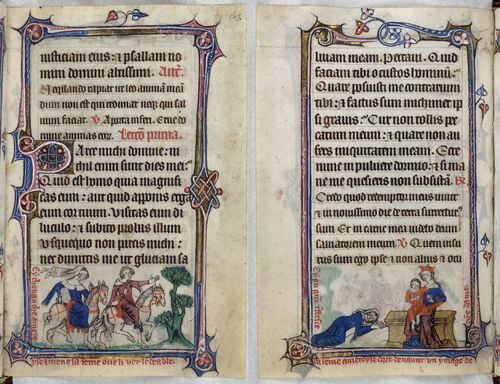 165
iusticiam eius: ⁊ psallam no
mini domini altissimi. Ant.
Nequando rapiat ut leo animam meā
dum non est qui redimat neqȝ qui sal
uum faciat. ℣ A porta inferi. Erue do
mine animas eor. Lectio prima.
Parce michi domine: ni
chil enim sunt dies mei.
Quid est homo quia magnifi
cas eum: aut quid apponis erga
eum cor tuum. Visitas eum di
luculo: ⁊ subito probas illum
Usquequo non parcis michi:
nec dimittis me ut glutiam sa
liuam meam. Peccaui. Quid
faciam tibi o custos hominū?
Quare posuisti me contrarium
tibi: ⁊ factus sum michimet ip
si grauis? Cur non tollis pec
catum meum: ⁊ quare non au
fers iniquitatem meam. Ecce
nunc in puluere dormio: ⁊ si ma
ne me quesieris non subsistā. ℟.
Credo quod redemptor meus uiuit
et in nouissimo die de terra surrecturus
sum Et in carne mea uidebo deum
saluatorem meum. ℣ Quem uisu
rus sum ego ipse ⁊ non alius ⁊ oci
la feme
ymage de